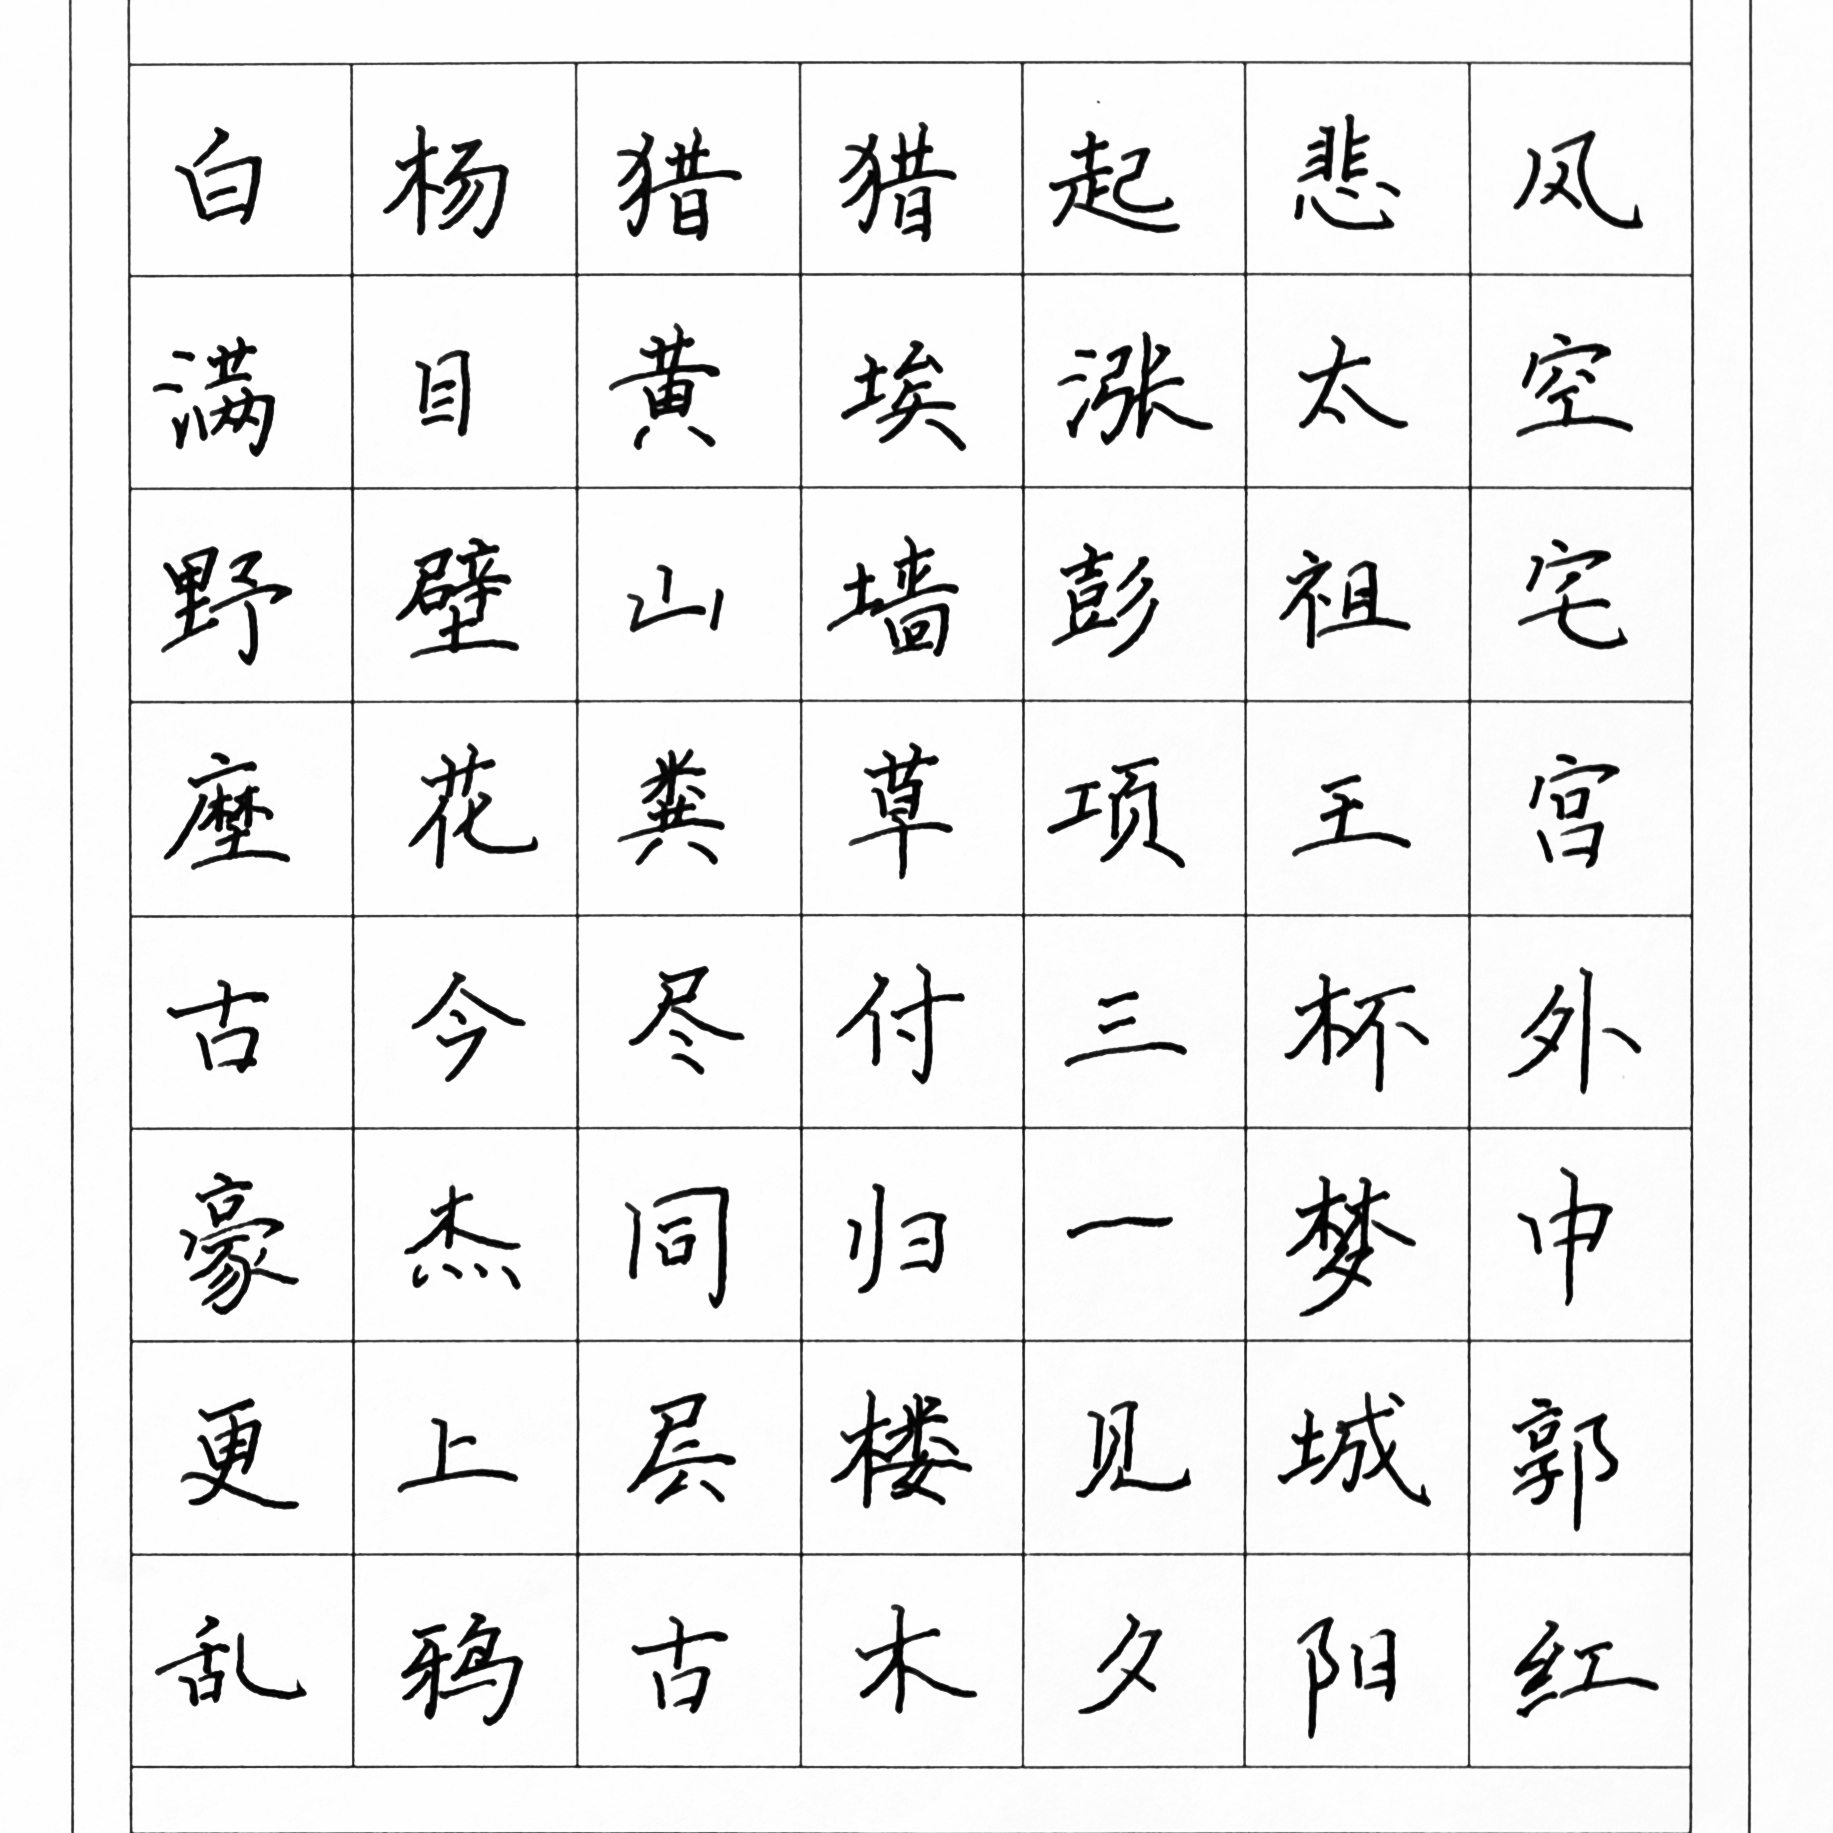 白杨猎猎起悲风
满目黄埃涨太空
野壁山墙彭祖宅
塺花粪草项王宫
古今尽付三杯外
豪杰同归一梦中
更上层楼见城郭
乱鸦古木夕阳红